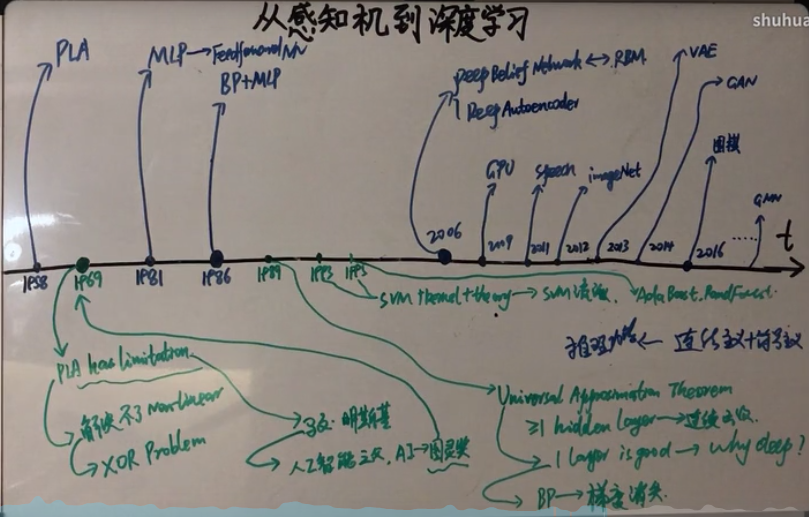 从感知机到深度学习
shuhua
PLA
MLP→Feedforward NN
BP+MLP
Deep Belief Network↔RBM
Deep Autoencoder
VAE
GAN
GPU
speech
imageNet
围棋
GNN
1958
1969
1981
1986
1989
1993
1995
2006
2009
2011
2012
2013
2014
2016
......
t
SVM+kernel+theory→SVM流派
AdaBoost. RandForest.
PLA has limitation
解决不了Nonlinear
→XOR Problem
明斯基
人工智能之父, AI→图灵奖
推理 ← 连结主义+符号主义
Universal Approximation Theorem
≥1 hidden layer→连续函数
1 layer is good→why deep?
BP→梯度消失.